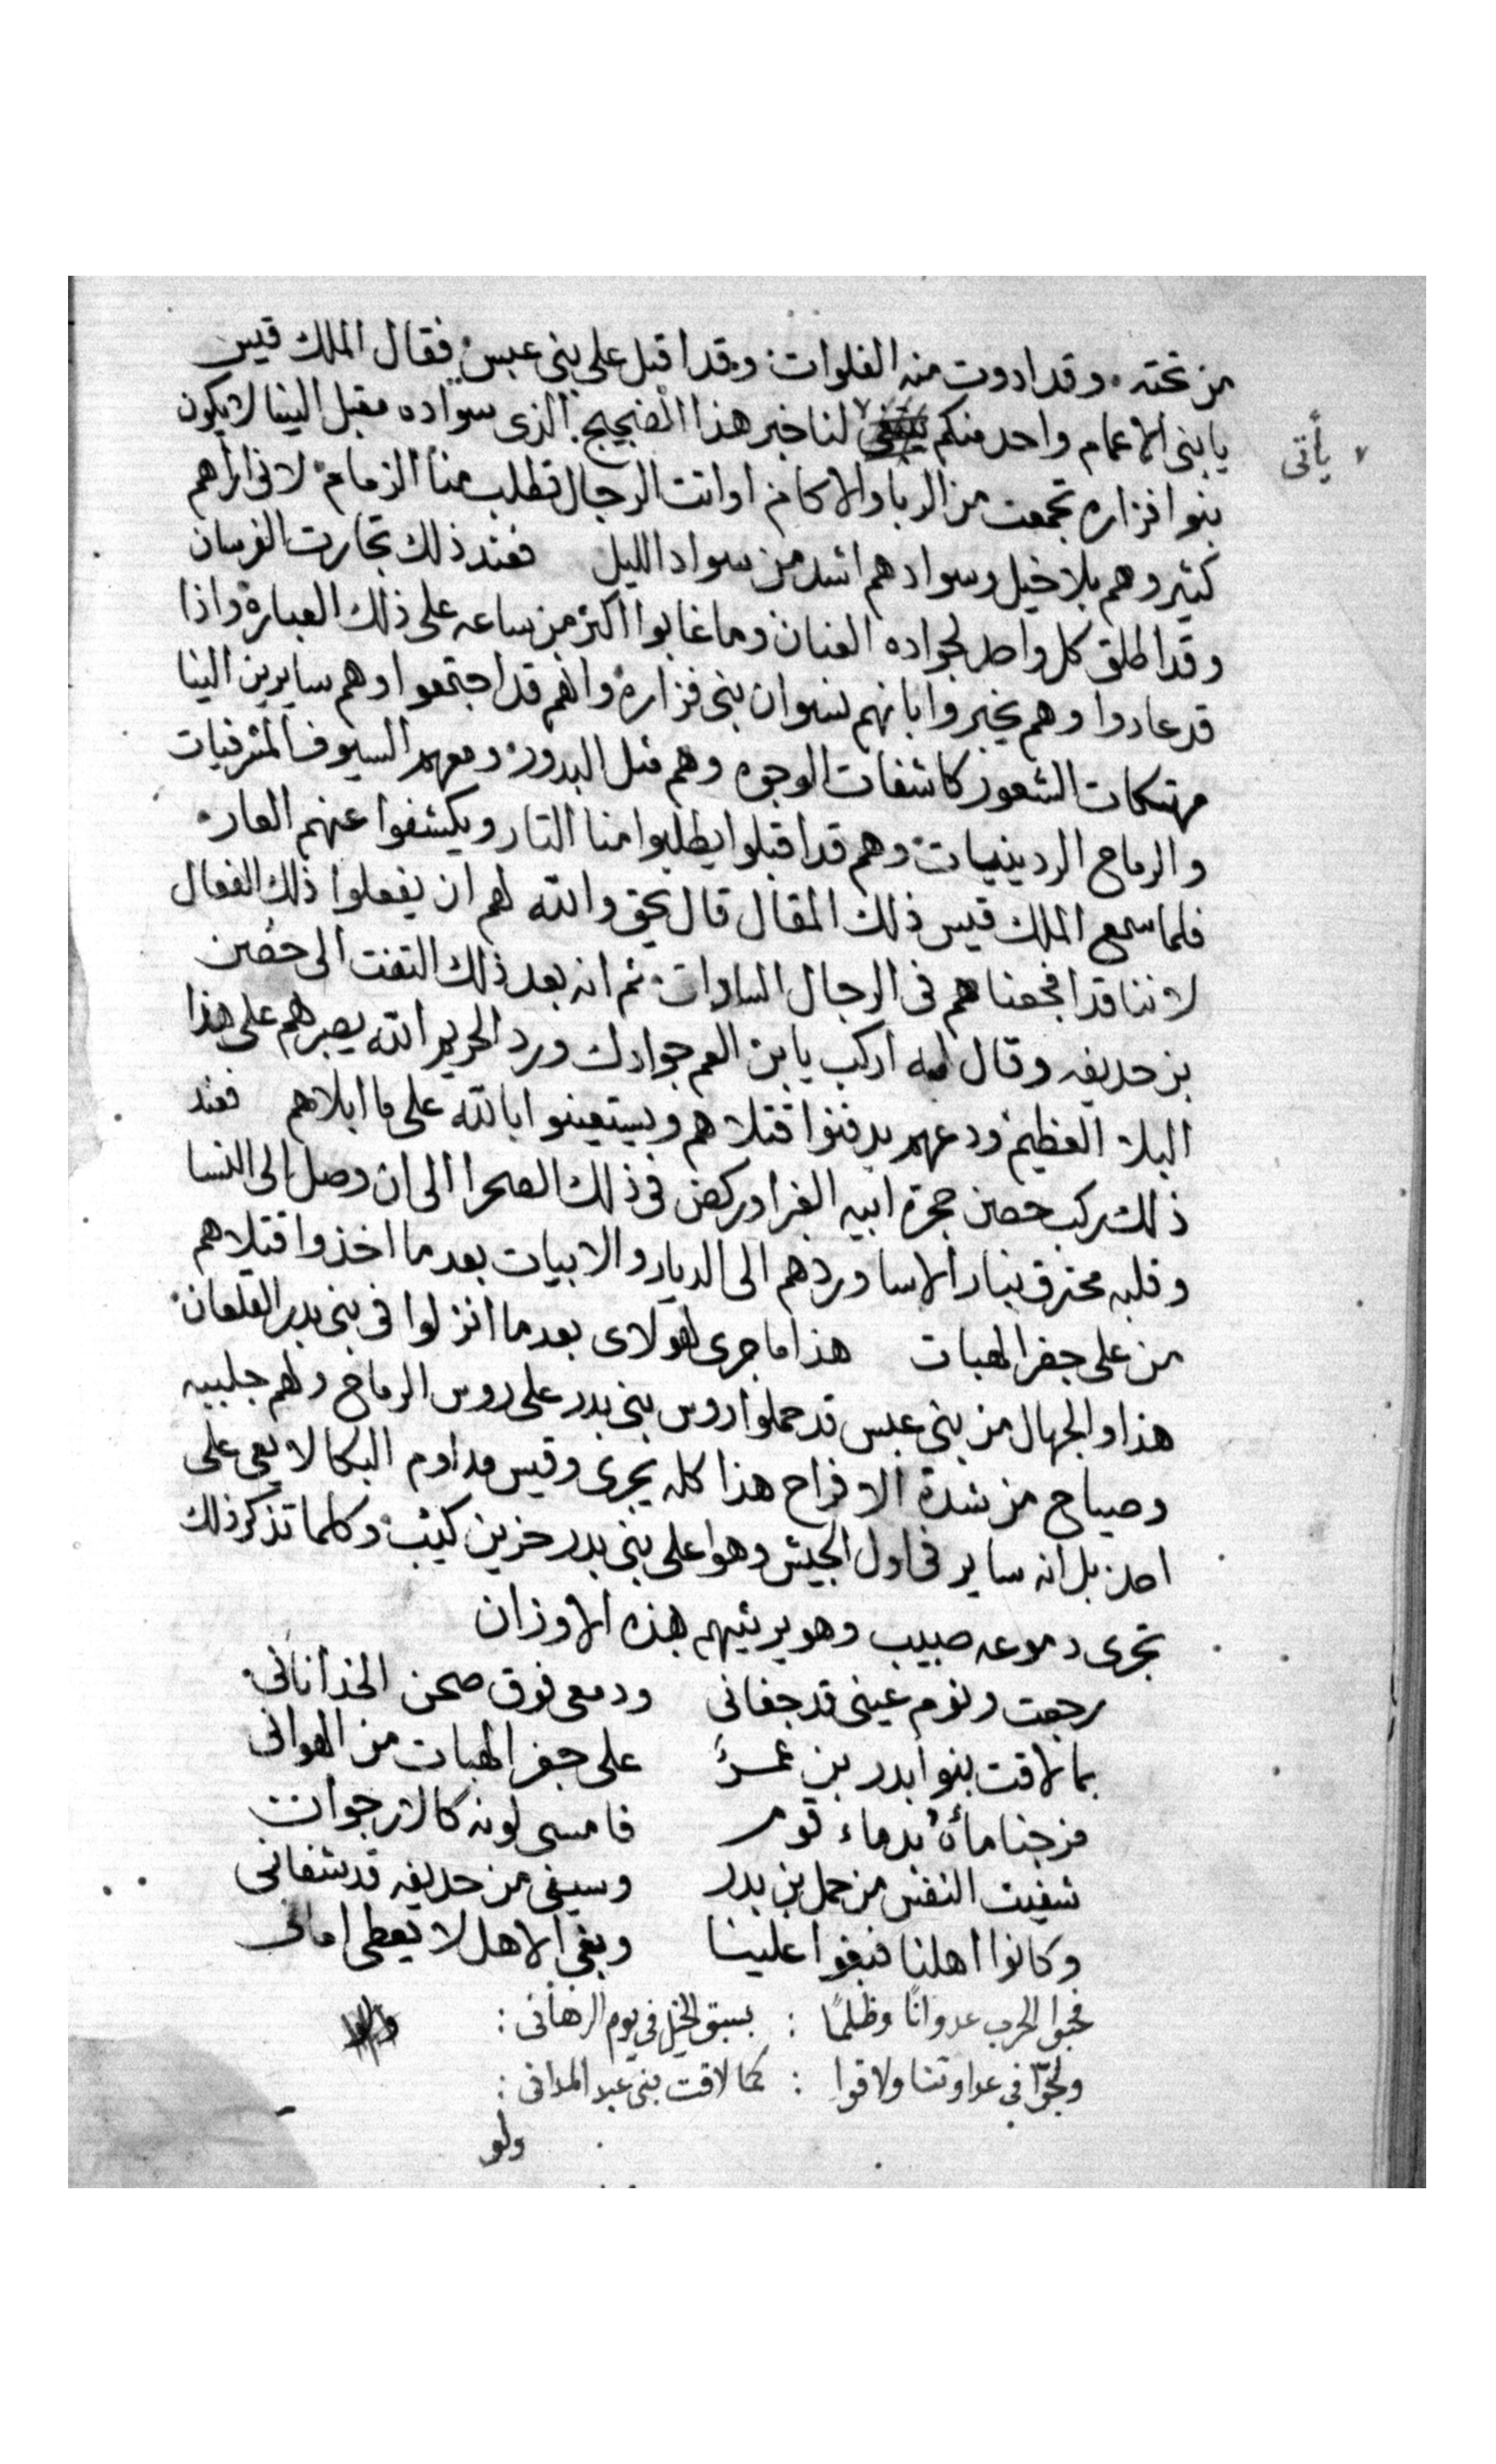 من تحته وقد ادوت منه الفلوات وقد اقبل على بنى عبس فقال الملك قيس
يا بنى الاعمام واحد منكم لنا خبر هذا الضجيج الذى سواده مقبل الينا لا يكون
يأتى
بنوا فزاره تجمعت من الربا والاكام او اتت الرجال تطلب منا الزمام لانى اراهم
كثير وهم بلا خيل وسوادهم اشد من سواد الليل فعند ذلك تجارت الفرسان
وقد اطلق كل واحد لجواده العنان وما غابوا اكثر من ساعه على ذلك العباره واذا
قد عادوا وهم يخبروا بانهم نسوان بنى فزاره وانهم قد اجتمعوا وهم سايرين الينا
مهتكات الشعور كاشفات الوجوه وهم مثل البدور ومعهم السيوف المشرفيات
والرماح الردينيات وهم قد اقبلوا يطلبوا منا التار ويكشفوا عنهم العار
فلما سمع الملك قيس ذلك المقال قال يحق والله لهم ان يفعلوا ذلك الفعال
لاننا قد افجعناهم فى الرجال السادات ثم انه بعد ذلك التفت الى حصن
بن حديفه وقال له اركب يا بن العم جوادك ورد الحريم الله يصبرهم على هذا
البلا العظيم ودعهم يدفنوا قتلاهم ويستعينوا بالله على ما ابلاهم فعند
ذلك ركب حصن حجرة ابيه الغبرا وركض فى ذلك الصحرا الى ان وصل الى النسا
وقلبه محترق بنار الاسا وردهم الى الديار والابيات بعدما اخذوا قتلاهم
من على جفر الهبات هذا ما جرى لهولاى بعدما انزلوا فى بنى بدر القلعان
هذا والجهال من بنى عبس قد حملوا روس بنى بدر على روس الرماح ولهم جلبيه
وصياح من شدة الافراح هذا كله يجرى وقيس مداوم البكا لا يعى على
احد بل انه ساير فى اول الجيش وهوا على بنى بدر حزين كئيب وكلما تذكر ذلك
تجرى دموعه صبيب وهو يرثيهم بهذه الاوزان
رجعت ونوم عينى قد جفانى ودمعى فوق صحن الخد اتانى
بما لاقت بنوا بدر بن عمرٍ على جفر الهبات من الهوانى
مزجنا مأهُ بدماء قوم فامسى لونه كالارجوان
شفيت النفس من حمل بن بدر وسيفى من حديفه قد شفانى
وكانوا اهلنا فبغوا علينا وبغى الاهل لا يعطى امانى
فجبوا الحرب عدوانًا وظلمًا : بسبق الخيل فى يوم الرهانى :
ولجوّا فى عداوتنا ولاقوا : كما لاقت بنى عبد المدانى :
ولو